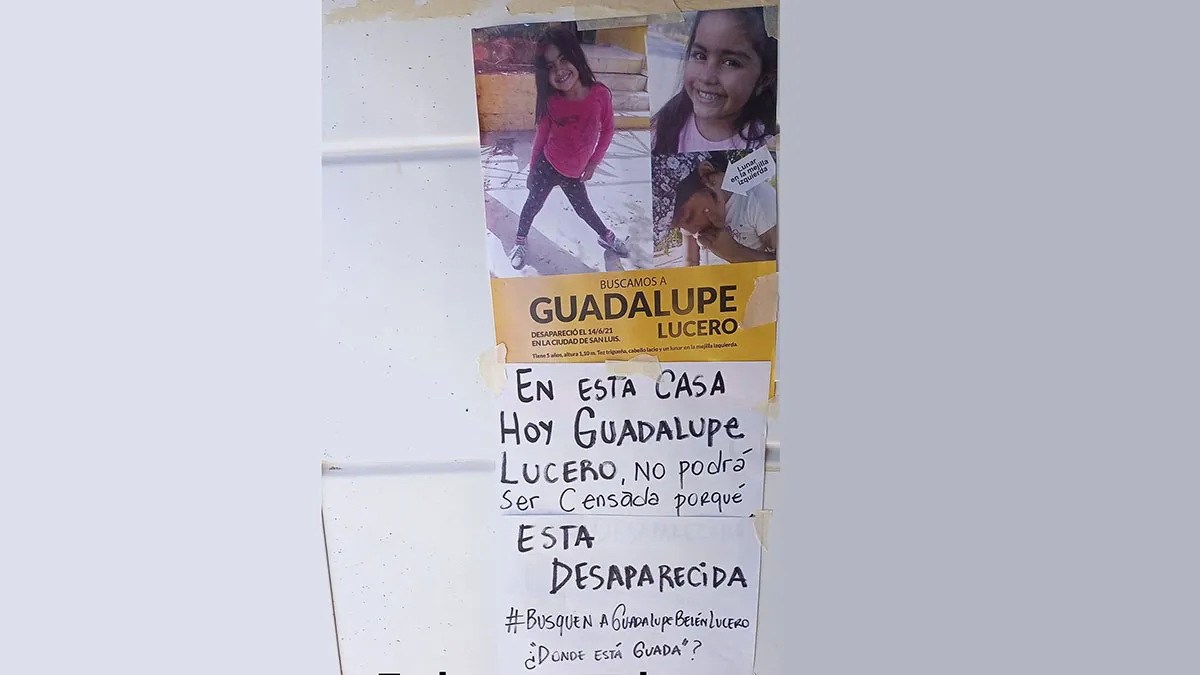 Lunar
en la mejilla
izquierda
BUSCAMOS A
GUADALUPE
LUCERO
DESAPARECIÓ EL 14/6/21
EN LA CIUDAD DE SAN LUIS.
Tiene 5 años, altura 1,10 m. Tez trigueña, cabello lacio y un lunar en la mejilla izquierda.
EN ESTA CASA
HOY GUADALUPE
LUCERO, NO podrá
ser Censada porqué
ESTA
DESAPARECIDA
#BUSQUEN A GUADALUPE BELÉN LUCERO
¿"DONDE ESTÁ GUADA"?